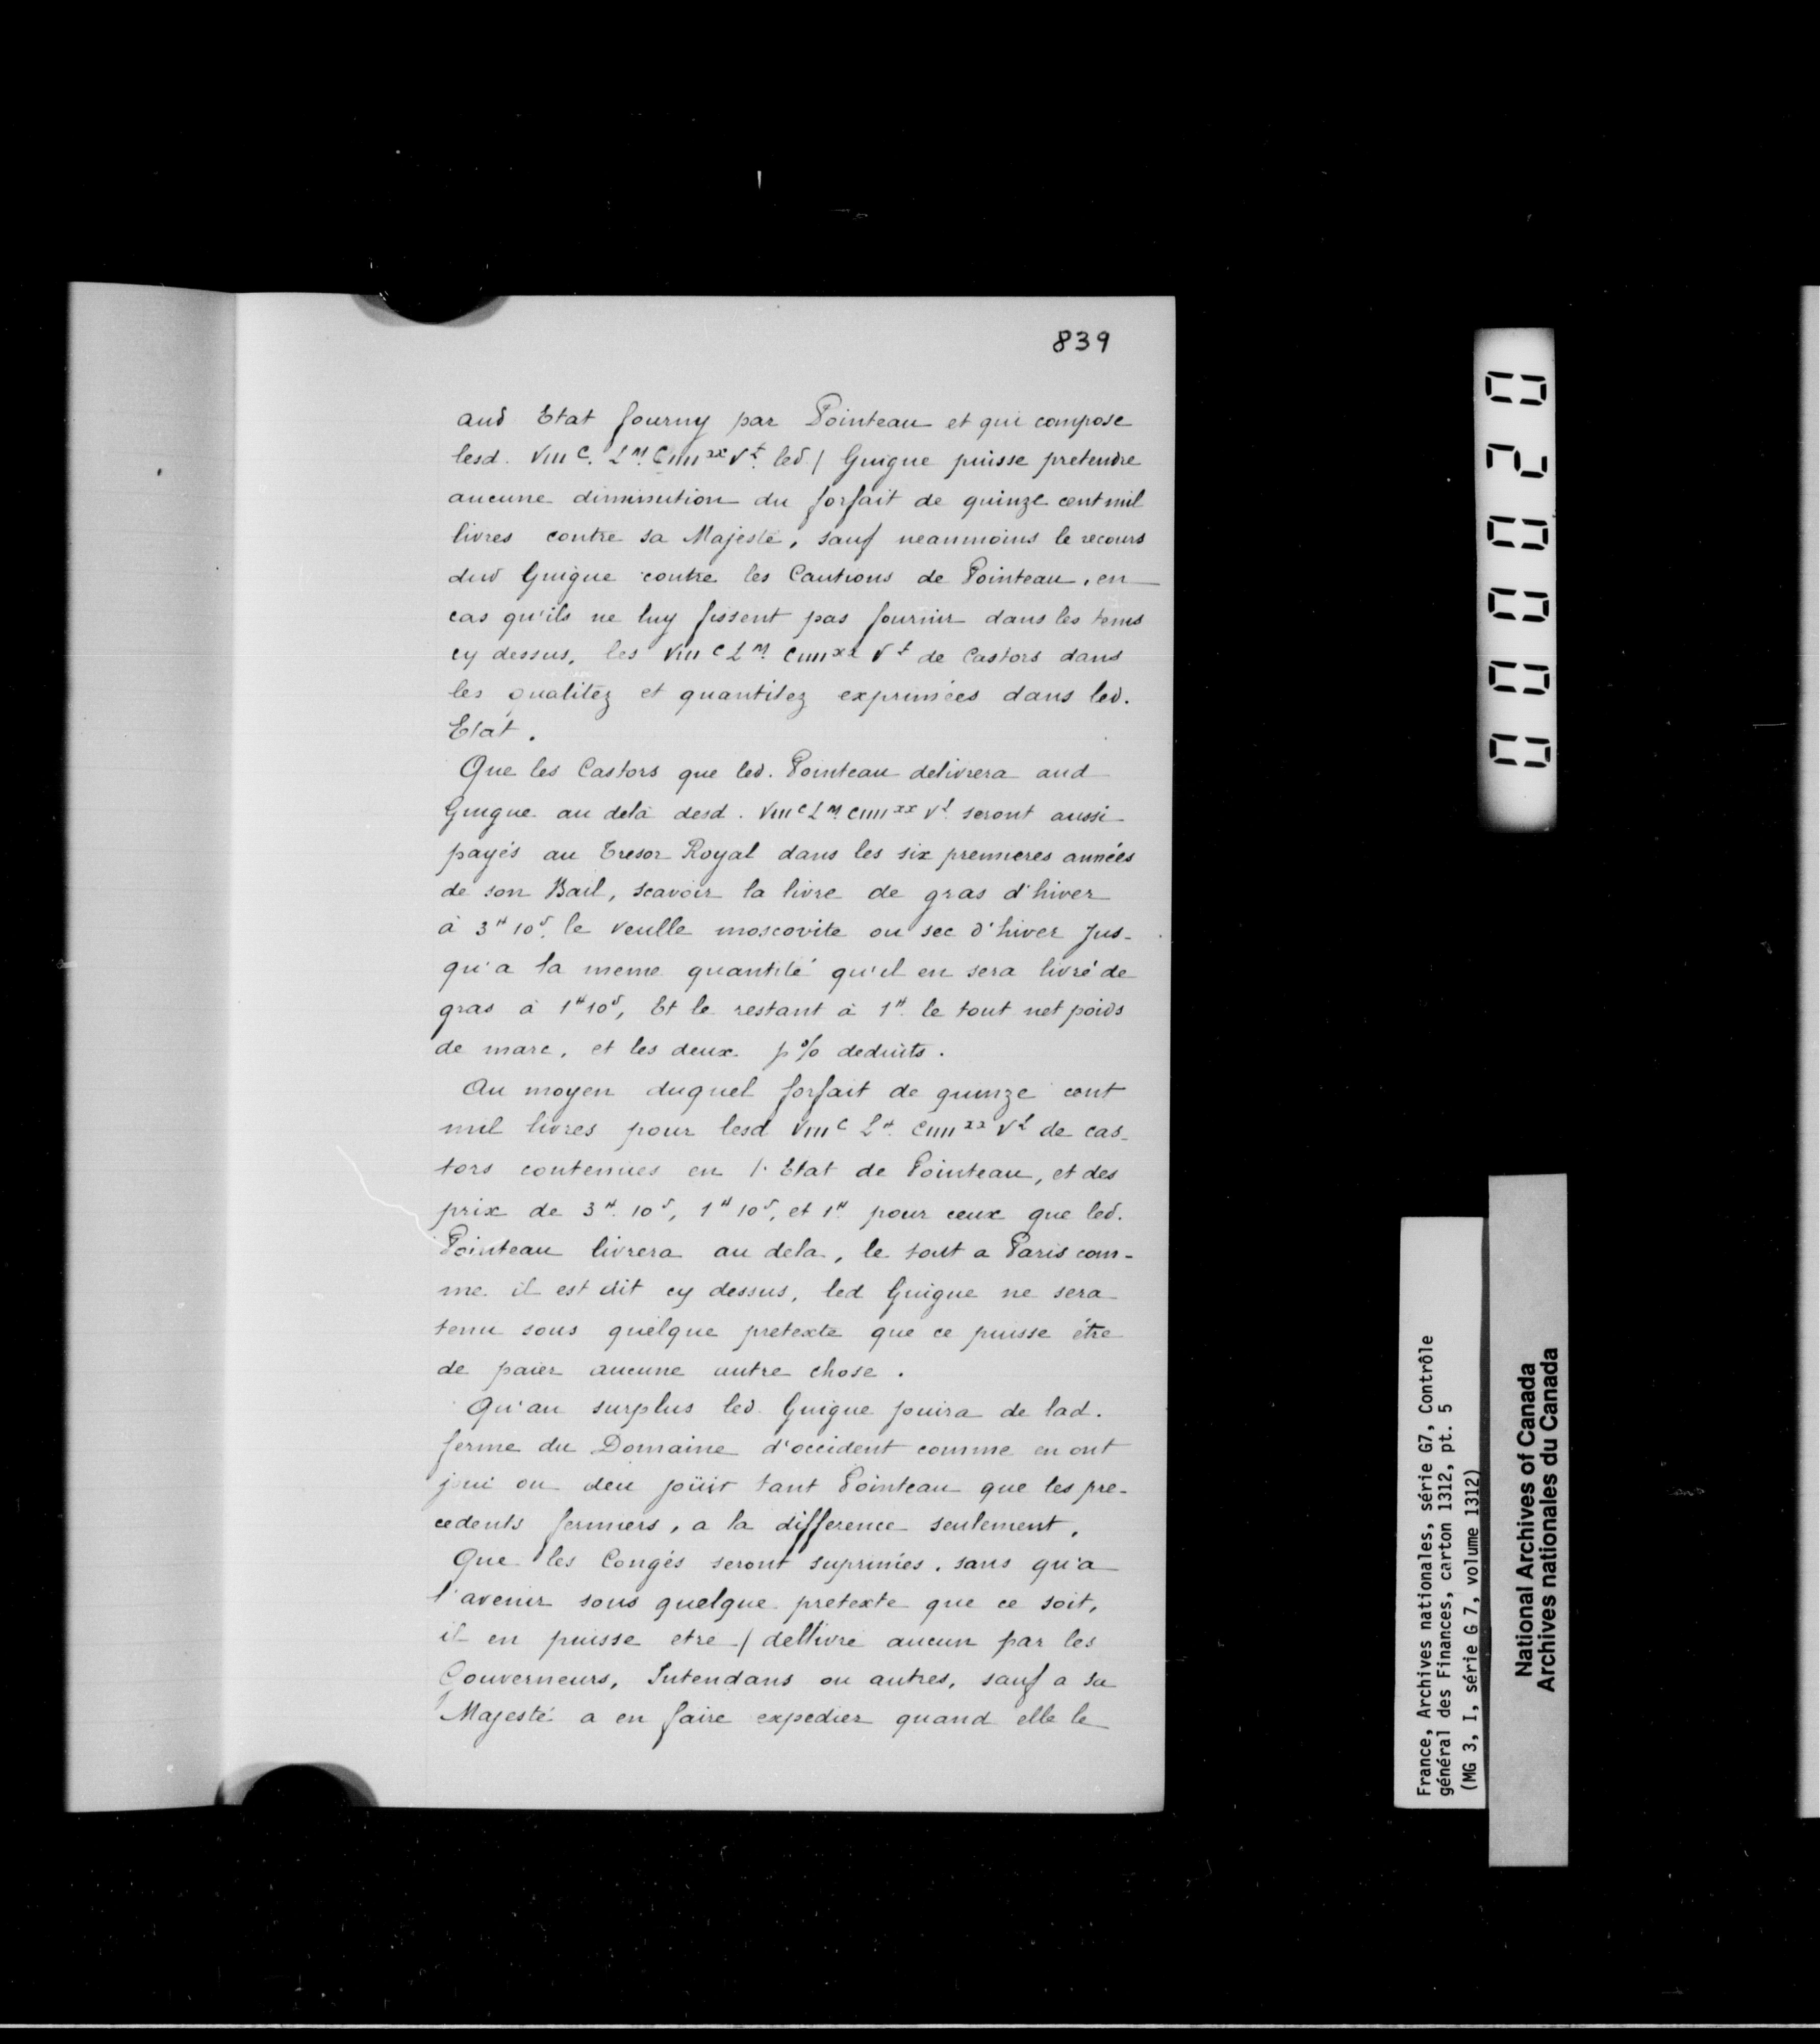 839
aud Etat fourny par Pointeau et qui compose
lesd. VIII C. L M. C IIII xx V t. led / Guigue puisse pretendre
aucune diminution du forfait de quinze cent mil
livres contre sa Majesté, sauf neanmoins le recours
dud Guigue contre les Cautions de Pointeau, en
cas qu'ils ne luy fissent pas fournir dans les tems
cy dessus, les VIII C L M. C IIII xx V t de Castors dans
les qualitéz et quantitez exprimées dans led.
Etat.
Que les Castors que led. Pointeau delivrera aud
Guigue au delà desd. VIII C L M. C IIII xx V t. seront aussi
payés au Tresor Royal dans les six premieres années
de son Bail, scavoir la livre de gras d'hiver
à 3 ʰ 10 ˢ. le veulle moscovite ou sec d'hiver Jus-
qu'a la meme quantité qu'il en sera livré de
gras à 1 ʰ 10 ˢ, Et le restant à 1 ʰ. le tout net poids
de marc, et les deux p % deduits.
Au moyen duquel forfait de quinze cent
mil livres pour lesd VIII C L M. C IIII xx V t de cas-
tors contenues en l'Etat de Pointeau, et des
prix de 3 ʰ. 10 ˢ, 1 ʰ 10 ˢ, et 1 ʰ. pour ceux que led.
Pointeau livrera au dela, le tout a Paris com-
me il est dit cy dessus, led Guigue ne sera
tenu sous quelque pretexte que ce puisse être
de paier aucune autre chose.
Qu'au surplus led. Guigue jouira de lad.
ferme du Domaine d'occident comme en ont
joui ou deu joüir tant Pointeau que les pre-
cedents fermiers, a la difference seulement,
Que les Congés seront suprimés, sans qu'a
l'avenir sous quelque pretexte que ce soit,
il en puisse etre / dellivré aucun par les
Gouverneurs, Intendans ou autres, sauf a sa
Majesté a en faire expedier quand elle le
000020
France, Archives nationales, série G7, Contrôle
général des Finances, carton 1312, pt. 5
(MG 3, I, série G 7, volume 1312)
National Archives of Canada
Archives nationales du Canada